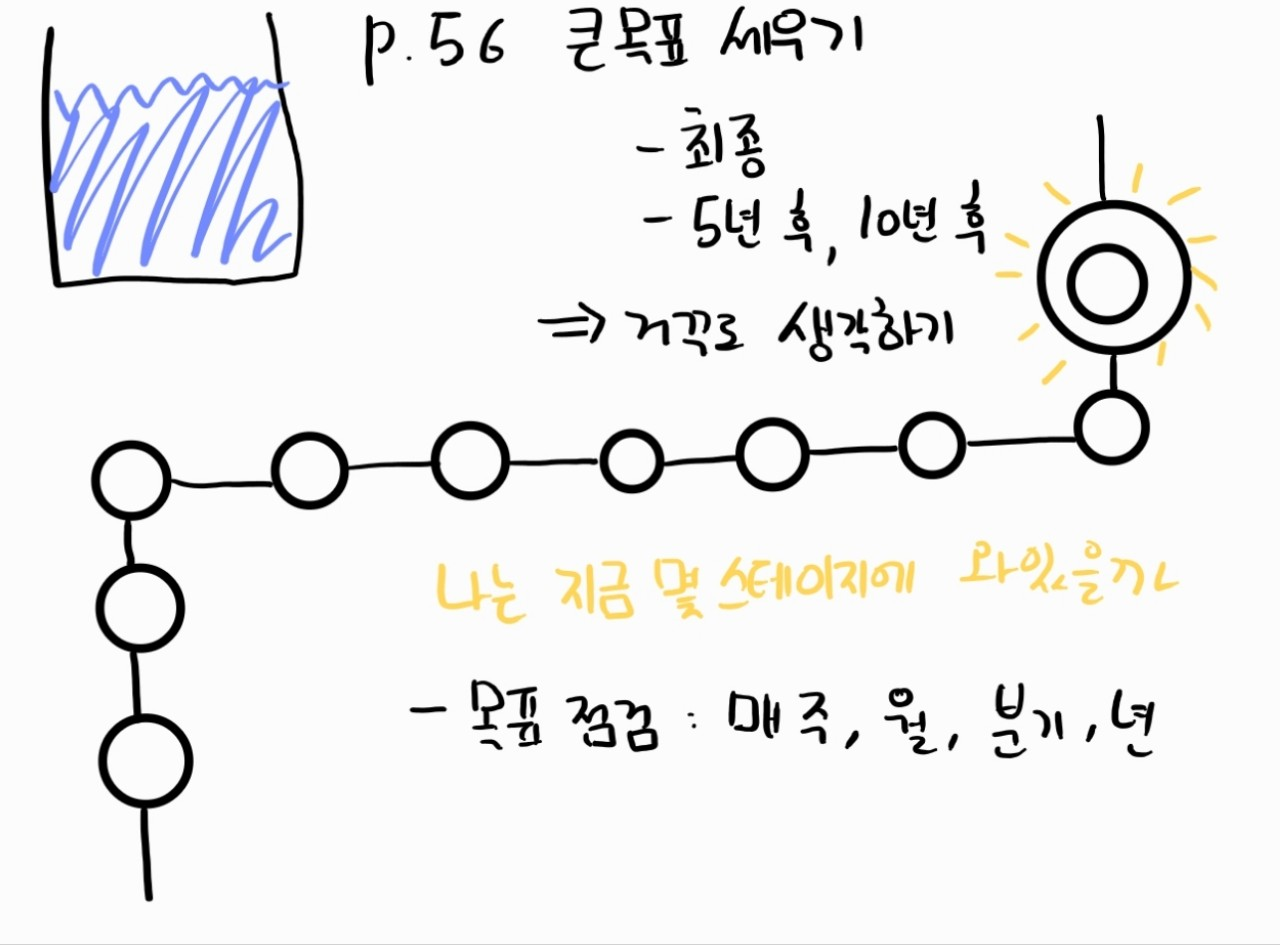 p.56 큰목표 세우기
- 최종
- 5년 후, 10년 후
⇒ 거꾹로 생각하기
나는 지금 몇 스테이지에 와있을까
- 목표 점검 : 매주, 월, 분기, 년